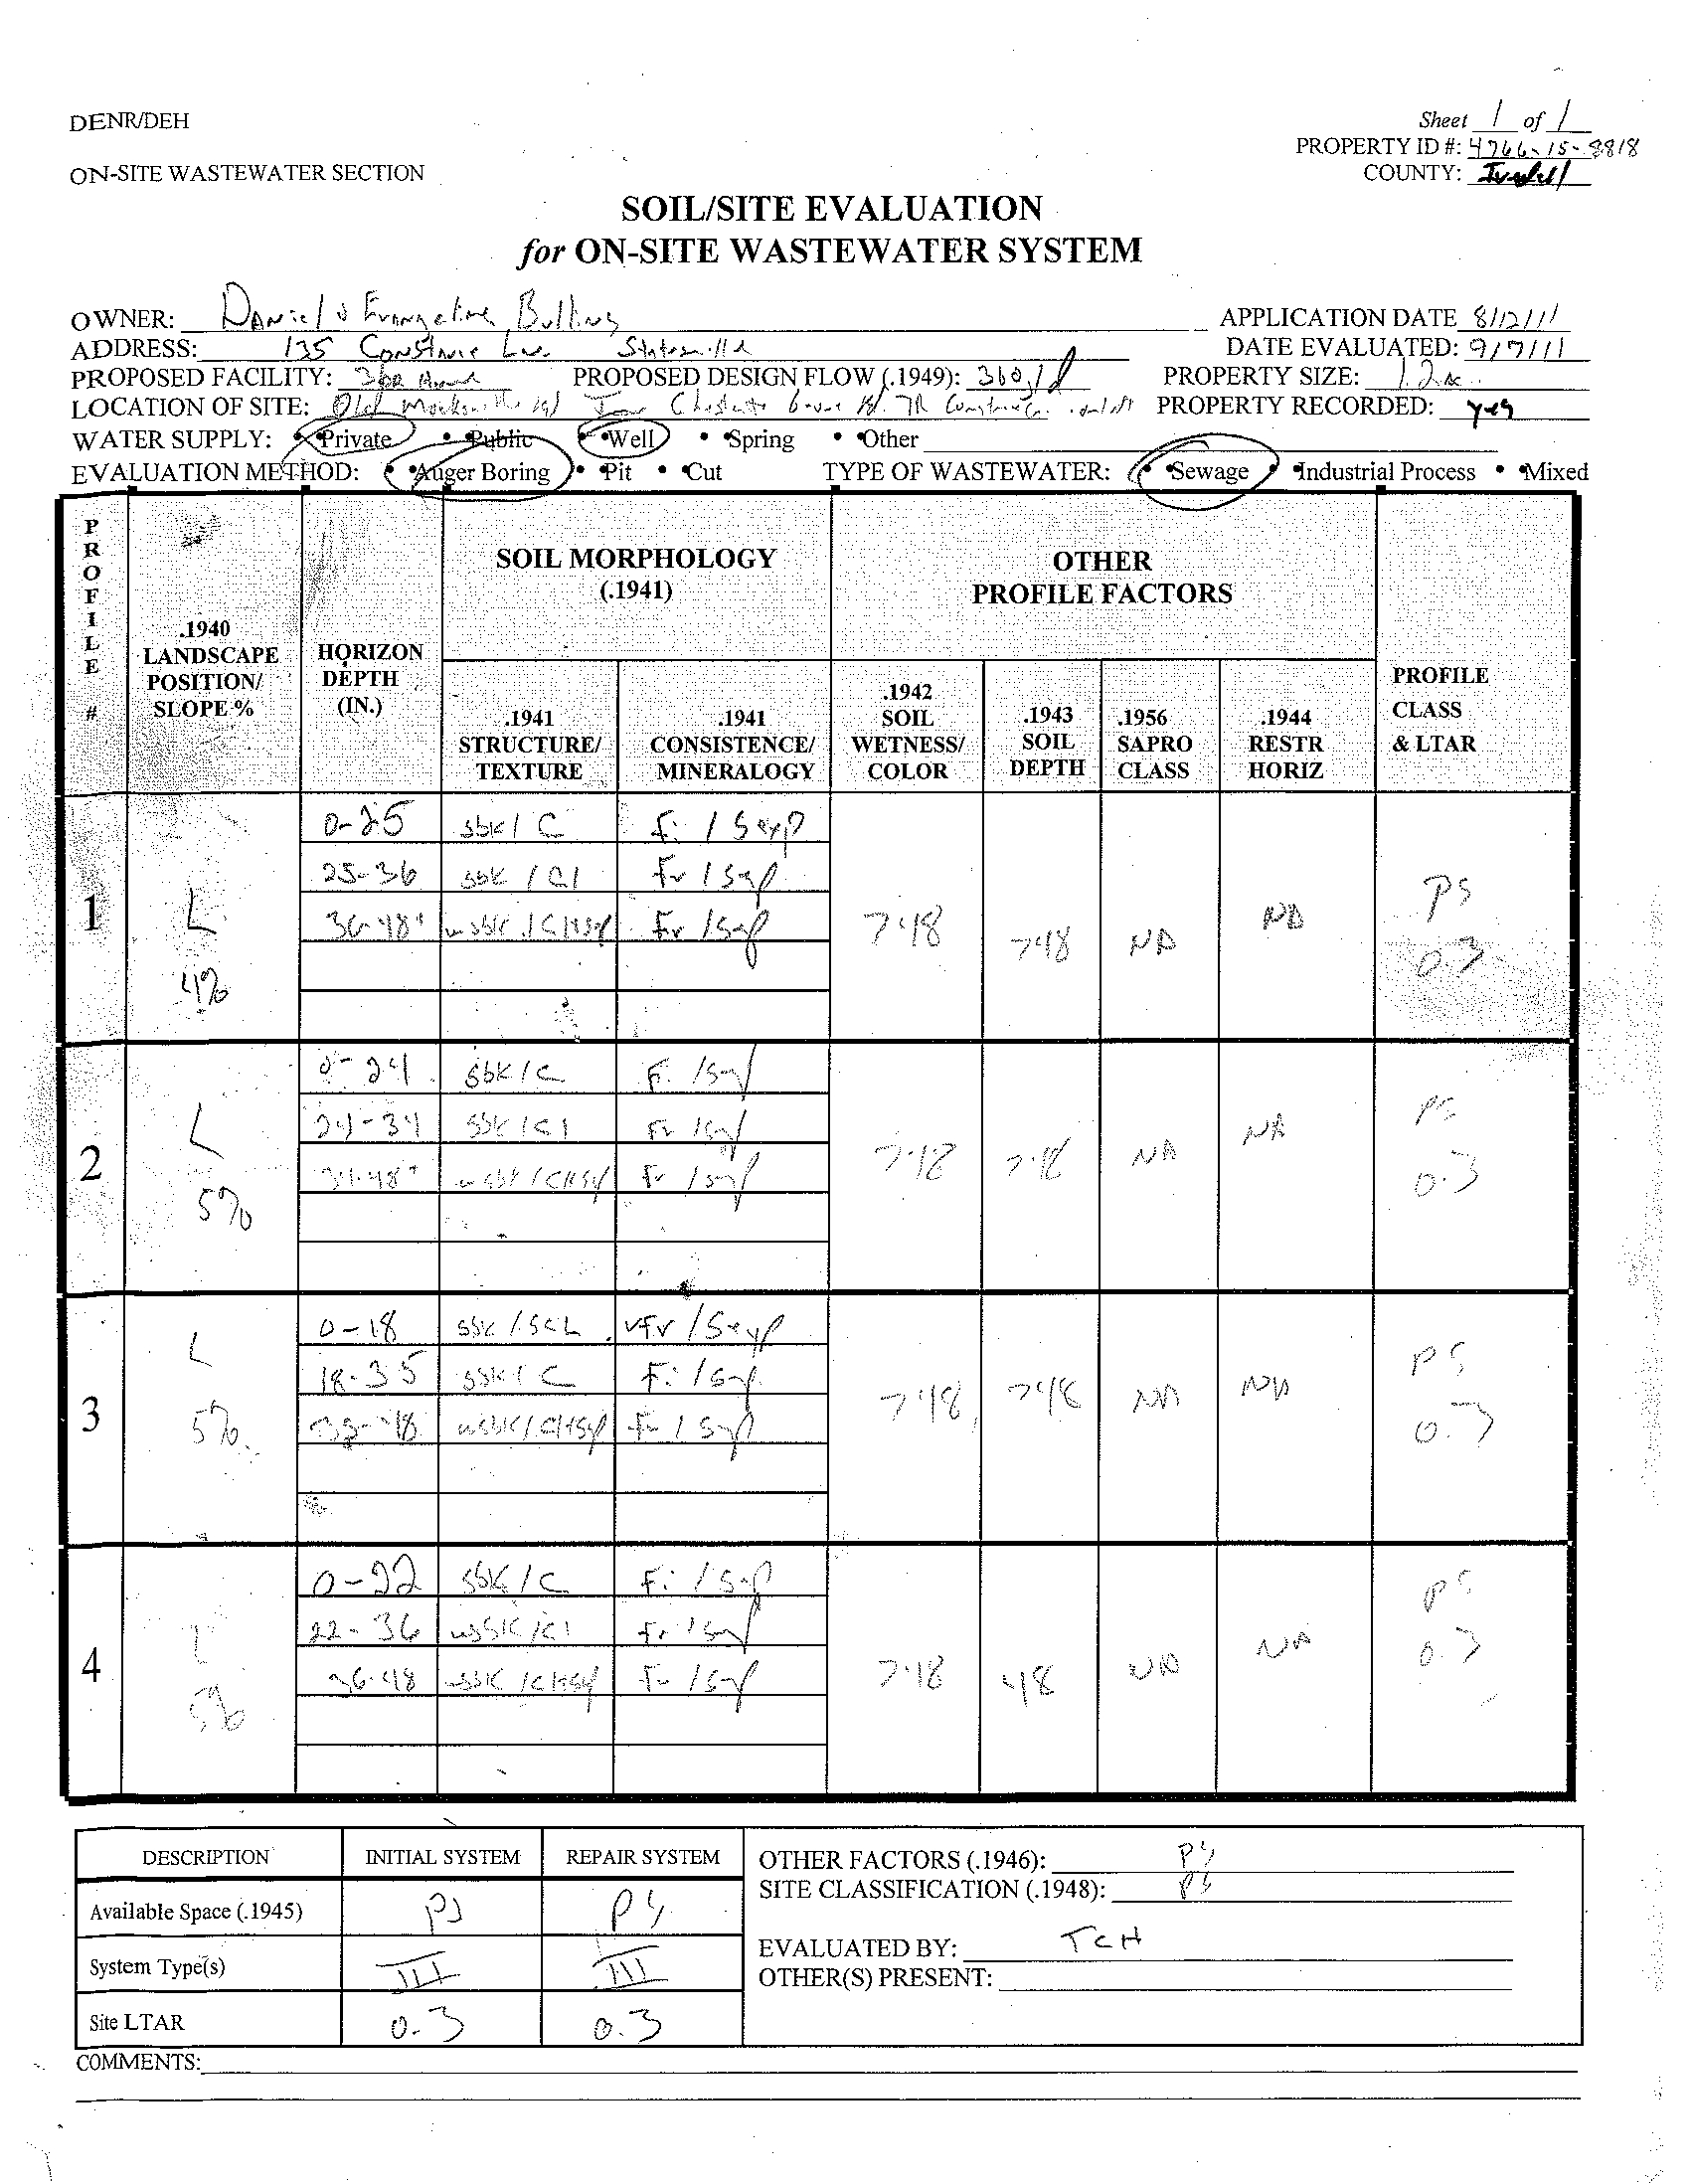 DENR/DEH
Sheet 1 of 1
PROPERTY ID #: 4766-15-8818
ON-SITE WASTEWATER SECTION
COUNTY: Iredell
SOIL/SITE EVALUATION
for ON-SITE WASTEWATER SYSTEM
OWNER: Daniel & Evangeline
APPLICATION DATE 8/12/11
ADDRESS: 135 Statesville
DATE EVALUATED: 9/7/11
PROPOSED FACILITY: 3BR
PROPOSED DESIGN FLOW (.1949): 360
PROPERTY SIZE: 1.2 ac
LOCATION OF SITE: Old Mocksville Rd
PROPERTY RECORDED: yes
WATER SUPPLY: • Private • Public • Well • Spring • Other
EVALUATION METHOD: • Auger Boring • Pit • Cut TYPE OF WASTEWATER: • Sewage • Industrial Process • Mixed
PROFILE #
.1940 LANDSCAPE POSITION/ SLOPE %
HORIZON DEPTH (IN.)
SOIL MORPHOLOGY (.1941)
OTHER PROFILE FACTORS
.1941 STRUCTURE/ TEXTURE
.1941 CONSISTENCE/ MINERALOGY
.1942 SOIL WETNESS/ COLOR
.1943 SOIL DEPTH
.1956 SAPRO CLASS
.1944 RESTR HORIZ
PROFILE CLASS & LTAR
1 L 4%
0-25 sbk/C Fi/Sexp
25-36 sbk/Cl Fr/Sexp
36-48+ wsbk/ Fr/Sexp
>48 >48 NA NA PS 0.3
2 L 5%
0-24 sbk/C Fi/Sexp
24-34 sbk/Cl Fr/Sexp
34-48+ wsbk/ Fr/Sexp
>48 >48 NA NA PS 0.3
3 L 5%
0-18 sbk/SCL vfr/Sexp
18-35 sbk/C Fi/Sexp
wsbk/ Fr/Sexp
>48 >48 NA NA PS 0.3
4 L 5%
0-22 sbk/C Fi/Sexp
22-36 wsbk/Cl Fr/Sexp
36-48 wsbk/ Fr/Sexp
>48 48 NA NA PS 0.3
DESCRIPTION INITIAL SYSTEM REPAIR SYSTEM
Available Space (.1945) PS PS
System Type(s) III III
Site LTAR 0.3 0.3
OTHER FACTORS (.1946): PS
SITE CLASSIFICATION (.1948): PS
EVALUATED BY: TCH
OTHER(S) PRESENT:
COMMENTS: